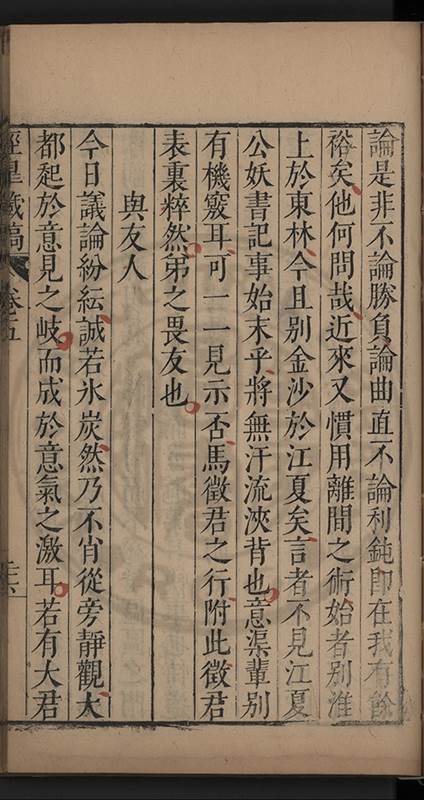 論是非不論勝負論曲直不論利鈍即在我有餘
裕矣他何問哉近來又慣用離間之術始者別淮
上於東林今且別金沙於江夏矣言者不見江夏
公妖書記事始末乎將無汗流浹背也意渠輩別
有機竅耳可一一見示否馬徵君之行附此徵君
表裏粹然弟之畏友也
與友人
今日議論紛紜誠若氷炭然乃不肖從旁靜觀大
都起於意見之岐而成於意氣之激耳若有大君
涇臯藏稿 卷五